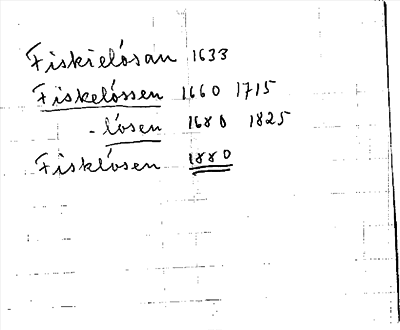 Fiskielósan 1633
Fiskelóssen 1660 1715
-lósen 1680 1825
Fisklósen 1880